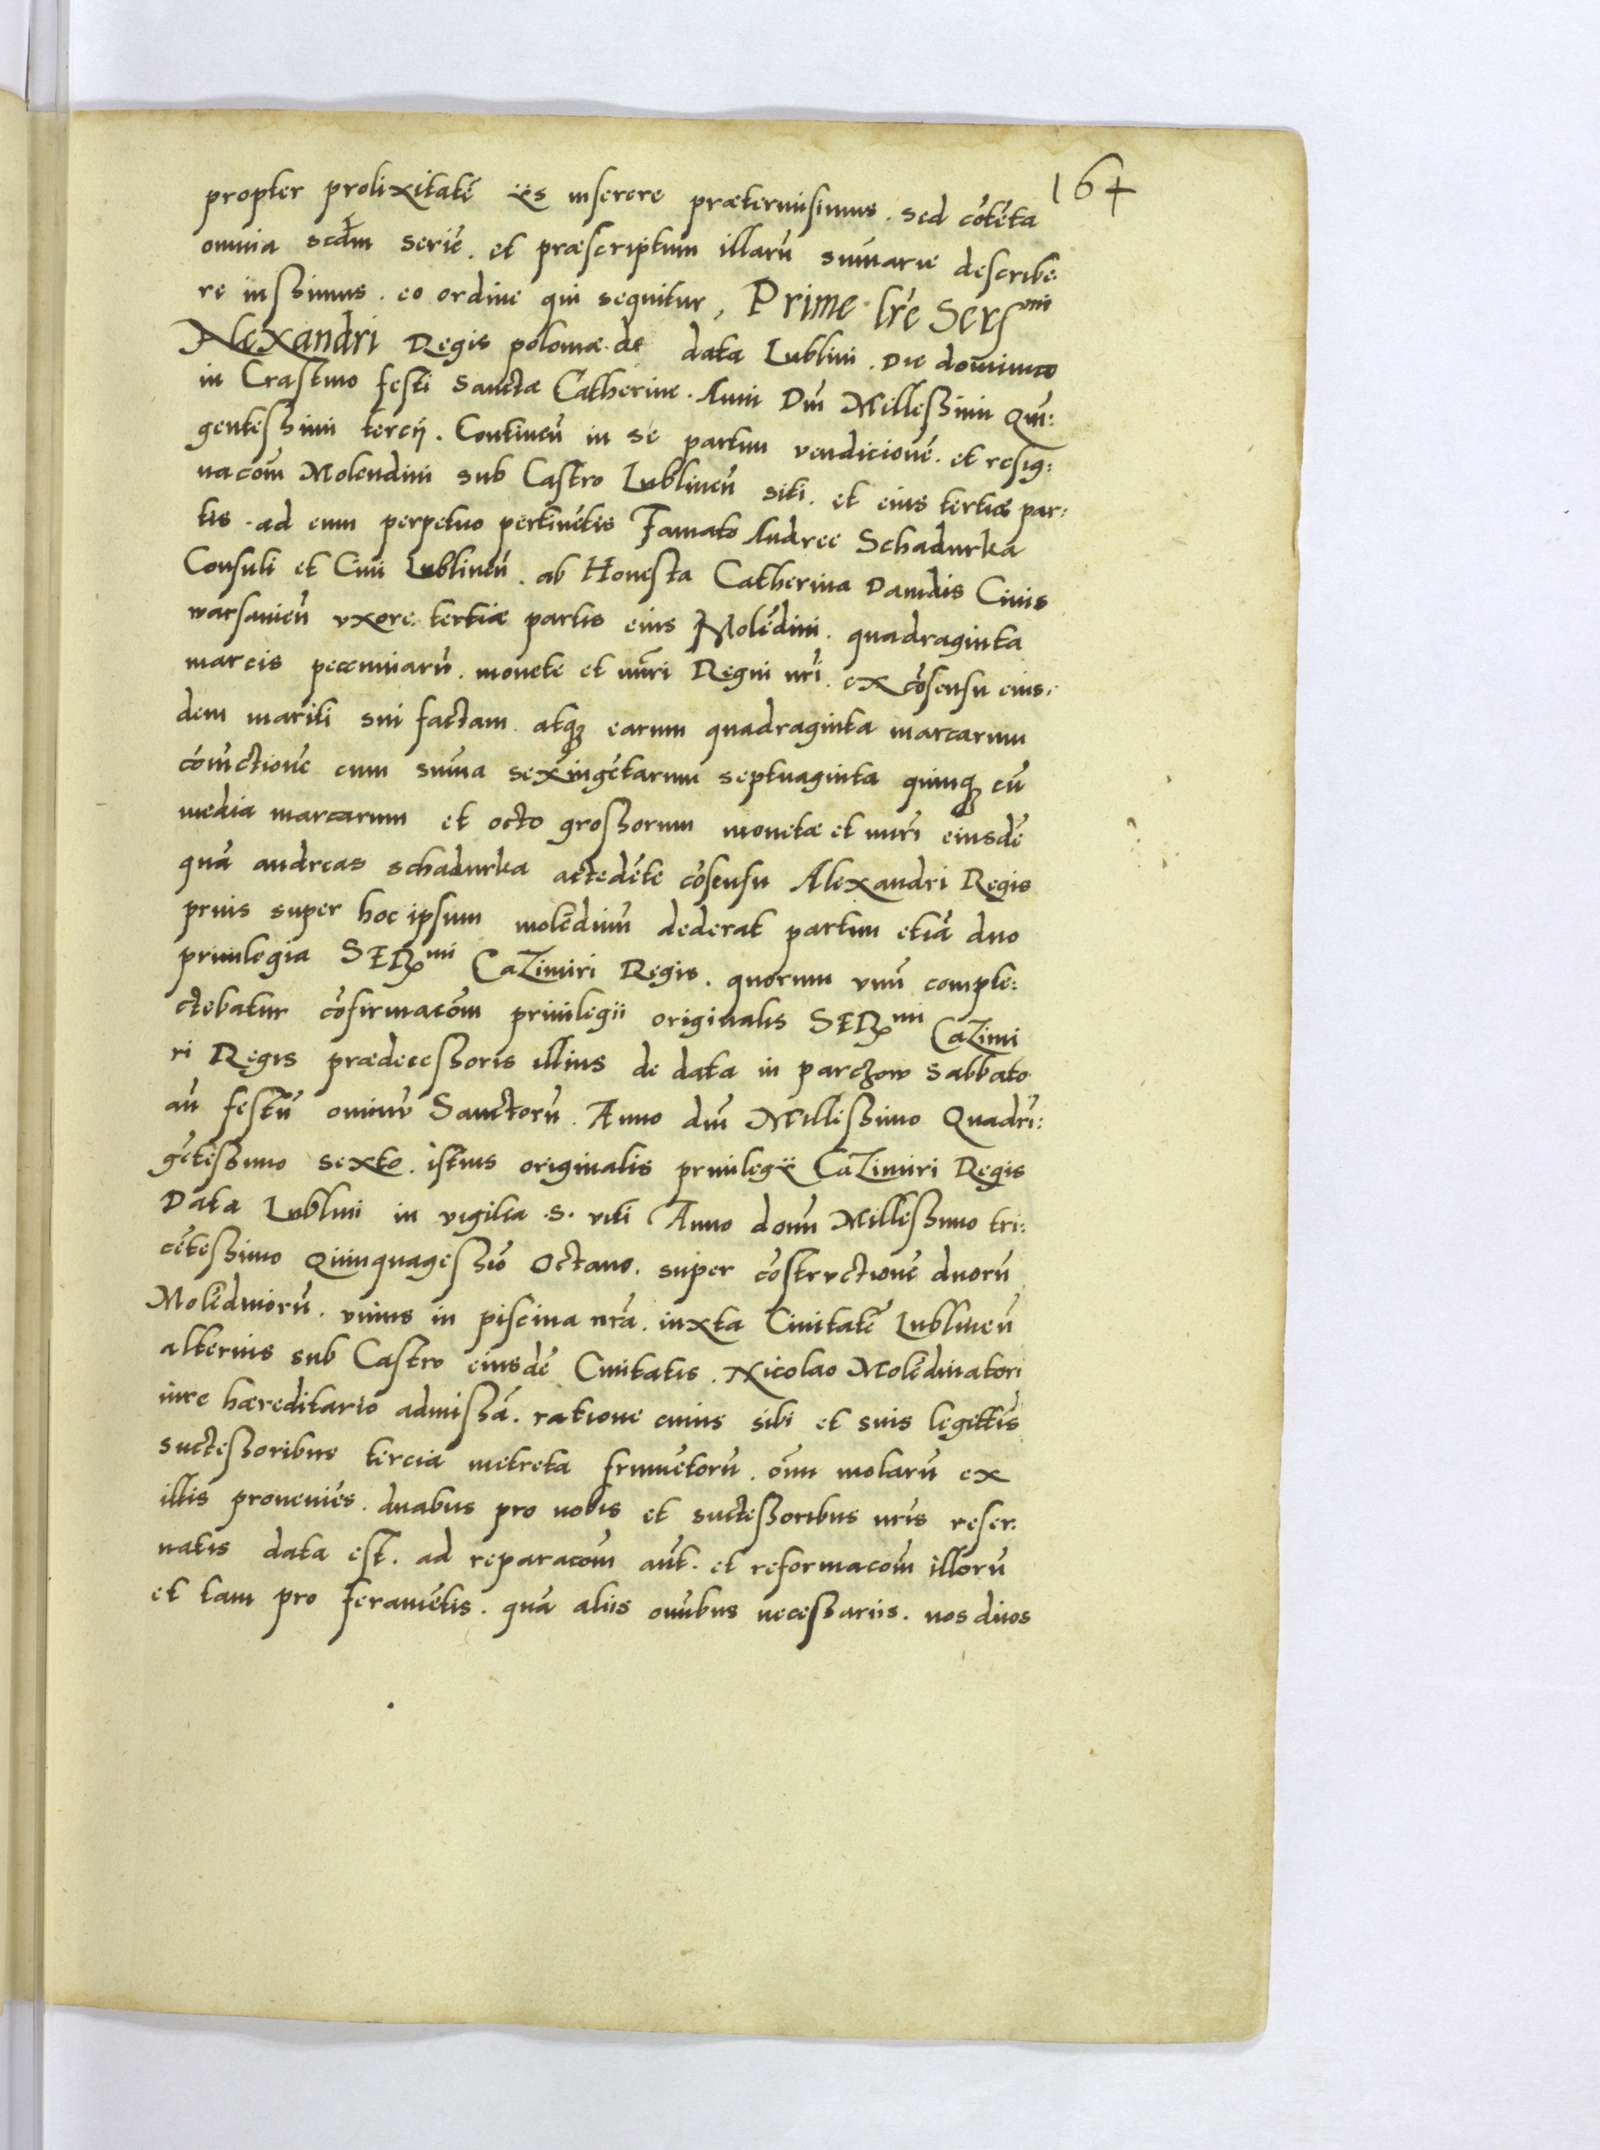 164
propter prolixitatē ijs inserere prætermisimus. sed cōtēta
omnia scdm seriē. et præscriptum illarū sūmarie describe
re iussimus. eo ordine qui sequitur, Prime lrē Sers mi
Alexandri Regis poloniæ de data Lublini. Die dominico
in Crastino festi Sanctæ Catherine. Anni Dni Millessimi Quī:
gentessimi tercij. Continen̄ in se partim vendicionē. et resig:
nacōm Molendini sub Castro Lublinen̄ siti. et eius tertiæ par:
tis. ad eum perpetuo pertinētis Famato Andree Schadurka
Consuli et Ciui Lublinen̄. ab Honesta Catherina Dauidis Ciuis
warsauien̄ vxore. tertiæ partis eius Molēdini. quadraginta
marcis pecuniarū. monete et nūri Regni nrī. ex cōsensu eius.
dem mariti sui factam. atq3 earum quadraginta marcarum
cōiūctione cum sūma sexingētarum septuaginta quinq3 cū
media marcarum et octo grossorum monetæ et nūri eiusdē
quā andreas schadurka accedēte cōsensu Alexandri Regis
prius super hoc ipsum molēdinū dederat partim etiā duo
priuilegia SER mi Cazimiri Regis. quorum vnū comple:
ctebatur cōfirmacōm priuilegii originalis SER mi Cazimi
ri Regis prædecessoris illius de data in parczow Sabbato
an̄ festū omniū Sanctorū. Anno dni Millessimo Quadrī:
gētessimo sexto. istius originalis priuilegij Cazimiri Regis
Data Lublini in vigilia .S. viti Anno domī Millessimo tri:
cētessimo Quinquagessiō Octauo. super cōstructionē duorū
Molēdinorū. vnius in piscina nrā. iuxta Ciuitatē Lublinen̄
alterius sub Castro eiusdē Ciuitatis. Nicolao Molēdinatori
iure hæreditario admissā. ratione cuius sibi et suis legittīs
successoribus tercia metreta frumētorū. oīm molarū ex
illis proueniēs. duabus pro nobis et successoribus nrīs reser:
uatis data est. ad reparacōm aūt. et reformacōm illorū
et tam pro feramētis. quā aliis omībus necessariis. nos duos